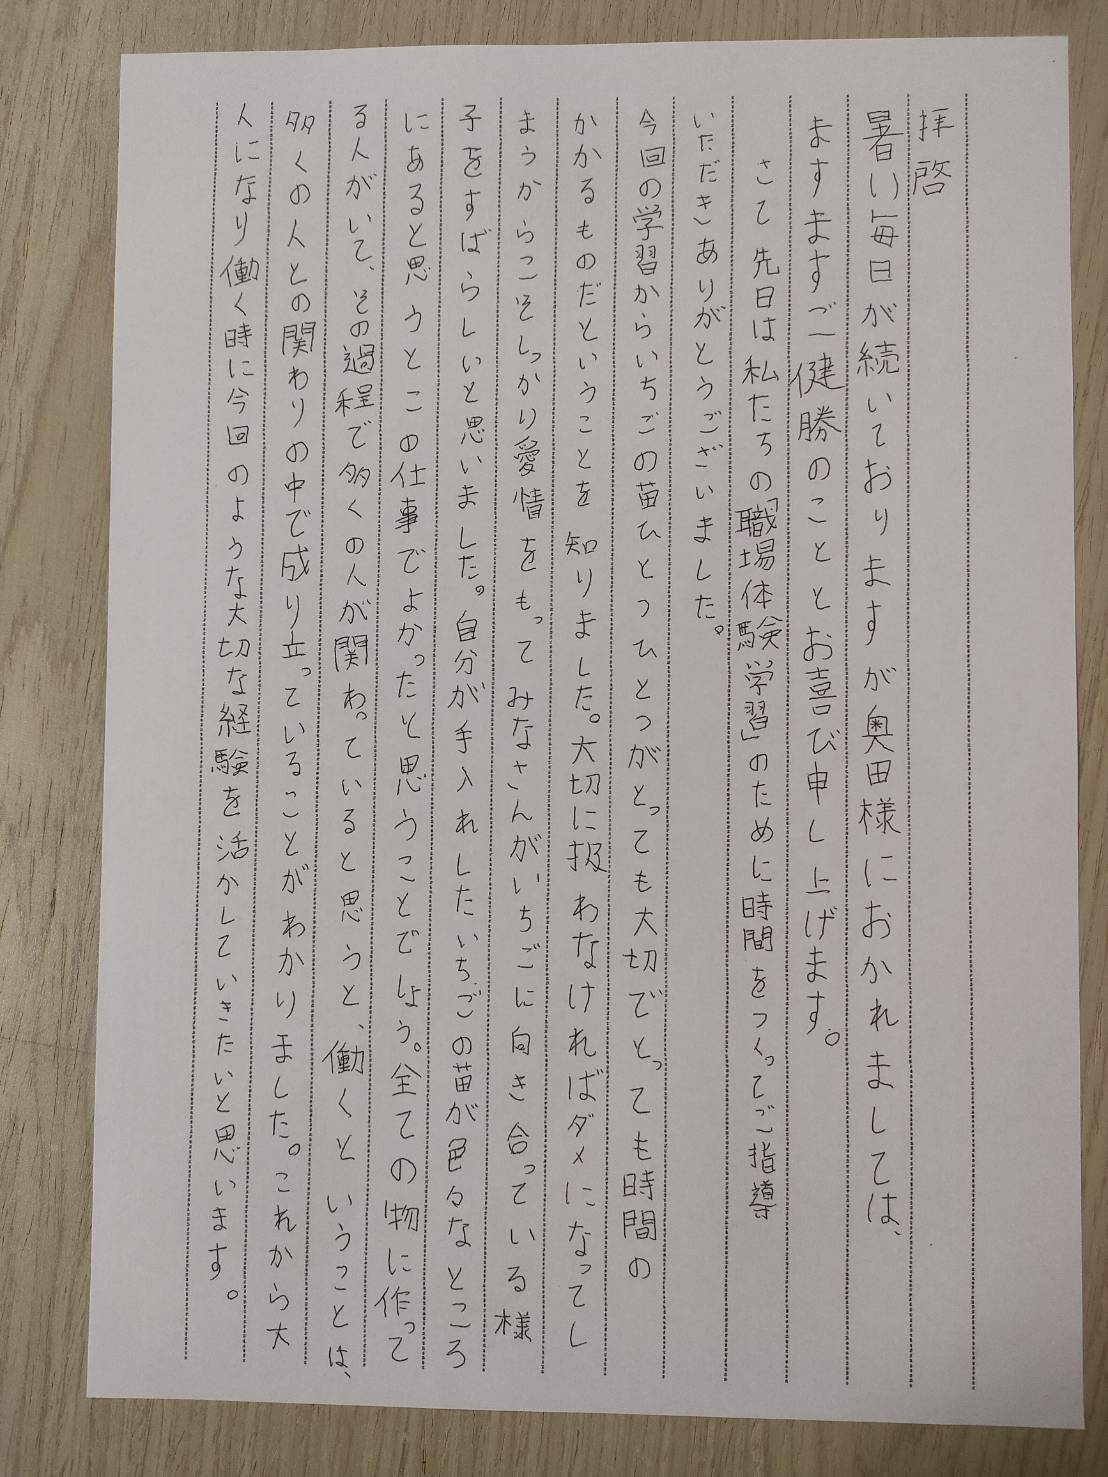 拝啓
暑い毎日が続いておりますが奥田様におかれましては、
ますますご健勝のこととお喜び申し上げます。
さて先日は私たちの「職場体験学習」のために時間をつくってご指導
いただきありがとうございました。
今回の学習からいちごの苗ひとつひとつがとっても大切でとっても時間の
かかるものだということを知りました。大切に扱わなければダメになってし
まうからこそしっかり愛情をもってみなさんがいちごに向き合っている様
子をすばらしいと思いました。自分が手入れしたいちごの苗が色々なところ
にあると思うとこの仕事でよかったと思うことでしょう。全ての物に作って
る人がいて、その過程で多くの人が関わっていると思うと、働くということは、
多くの人との関わりの中で成り立っていることがわかりました。これから大
人になり働く時に今回のような大切な経験を活かしていきたいと思います。